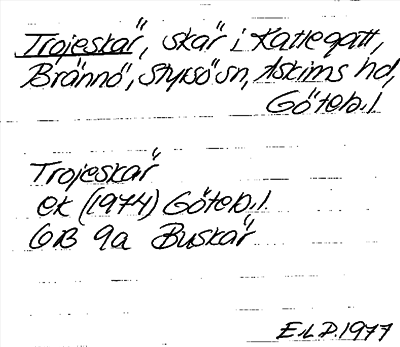 Trojeskär, skär i Kattegatt,
Brännö, Styrsö sn, Askims hd,
Göteb.l.
Trojeskär
ek (1974) Göteb.l.
GB 9a Buskär
E.L.P. 1977